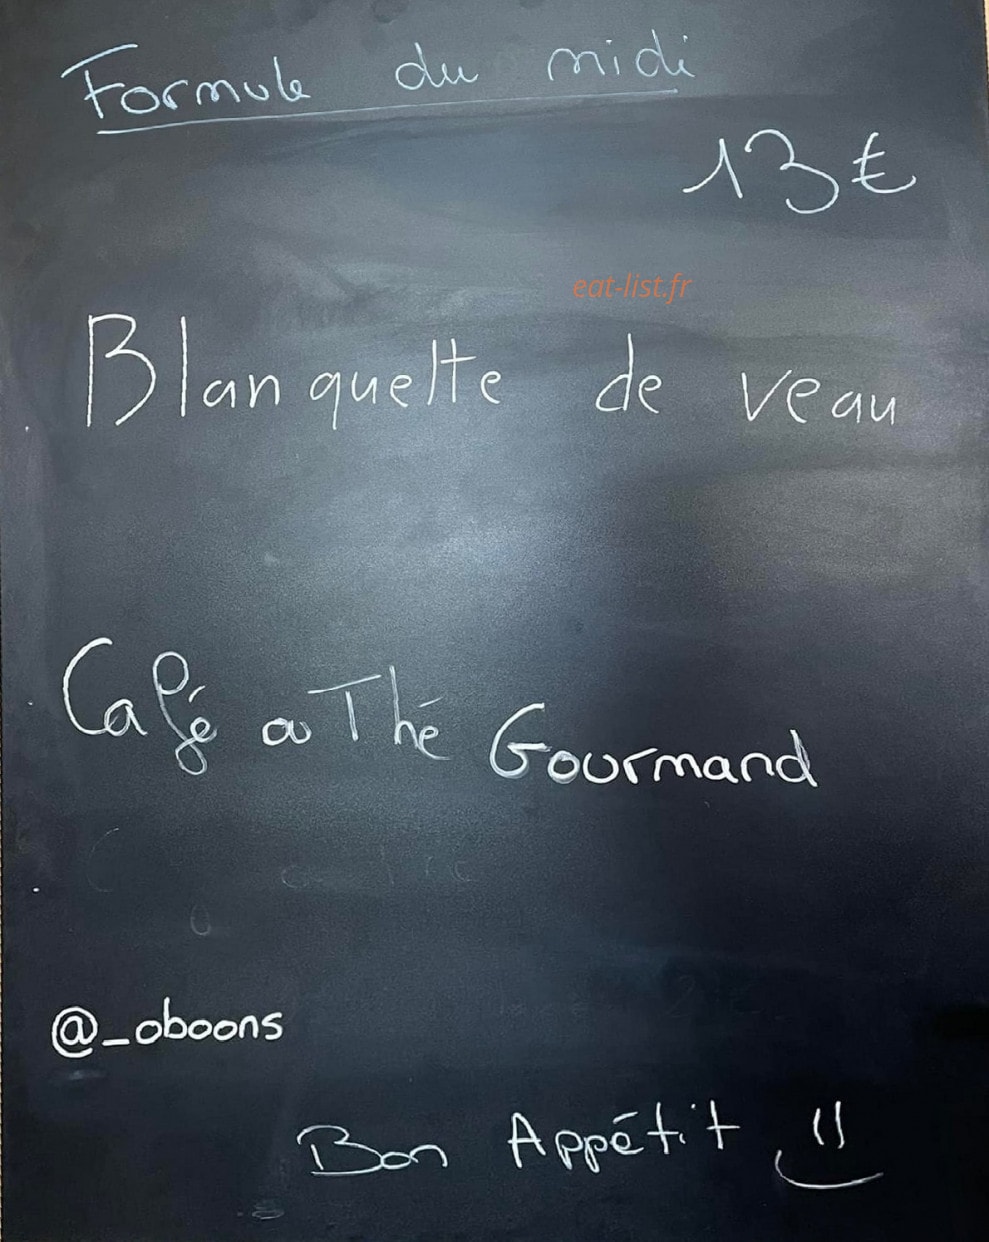 Formule du midi
13€
eat-list.fr
Blanquette de veau
Café ou Thé Gourmand
@_oboons
Bon Appétit